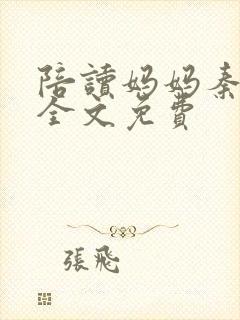 陪讀妈妈秦
全文免費
張飛